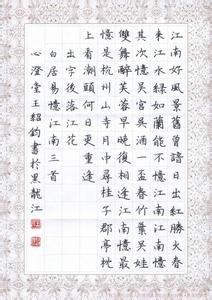 江南好風景舊曾諳日出紅勝火春
來江水綠如蘭能不憶江南江南憶
其次憶吳宮吳酒一盃春竹葉吳娃
雙舞醉芙蓉早晚復相逢江南憶最
憶是杭州山寺月中尋桂子郡亭枕
上看潮頭何日更重逢
出字後落江花
白居易憶江南三首
心澄堂王紹鈞書於黑龍江